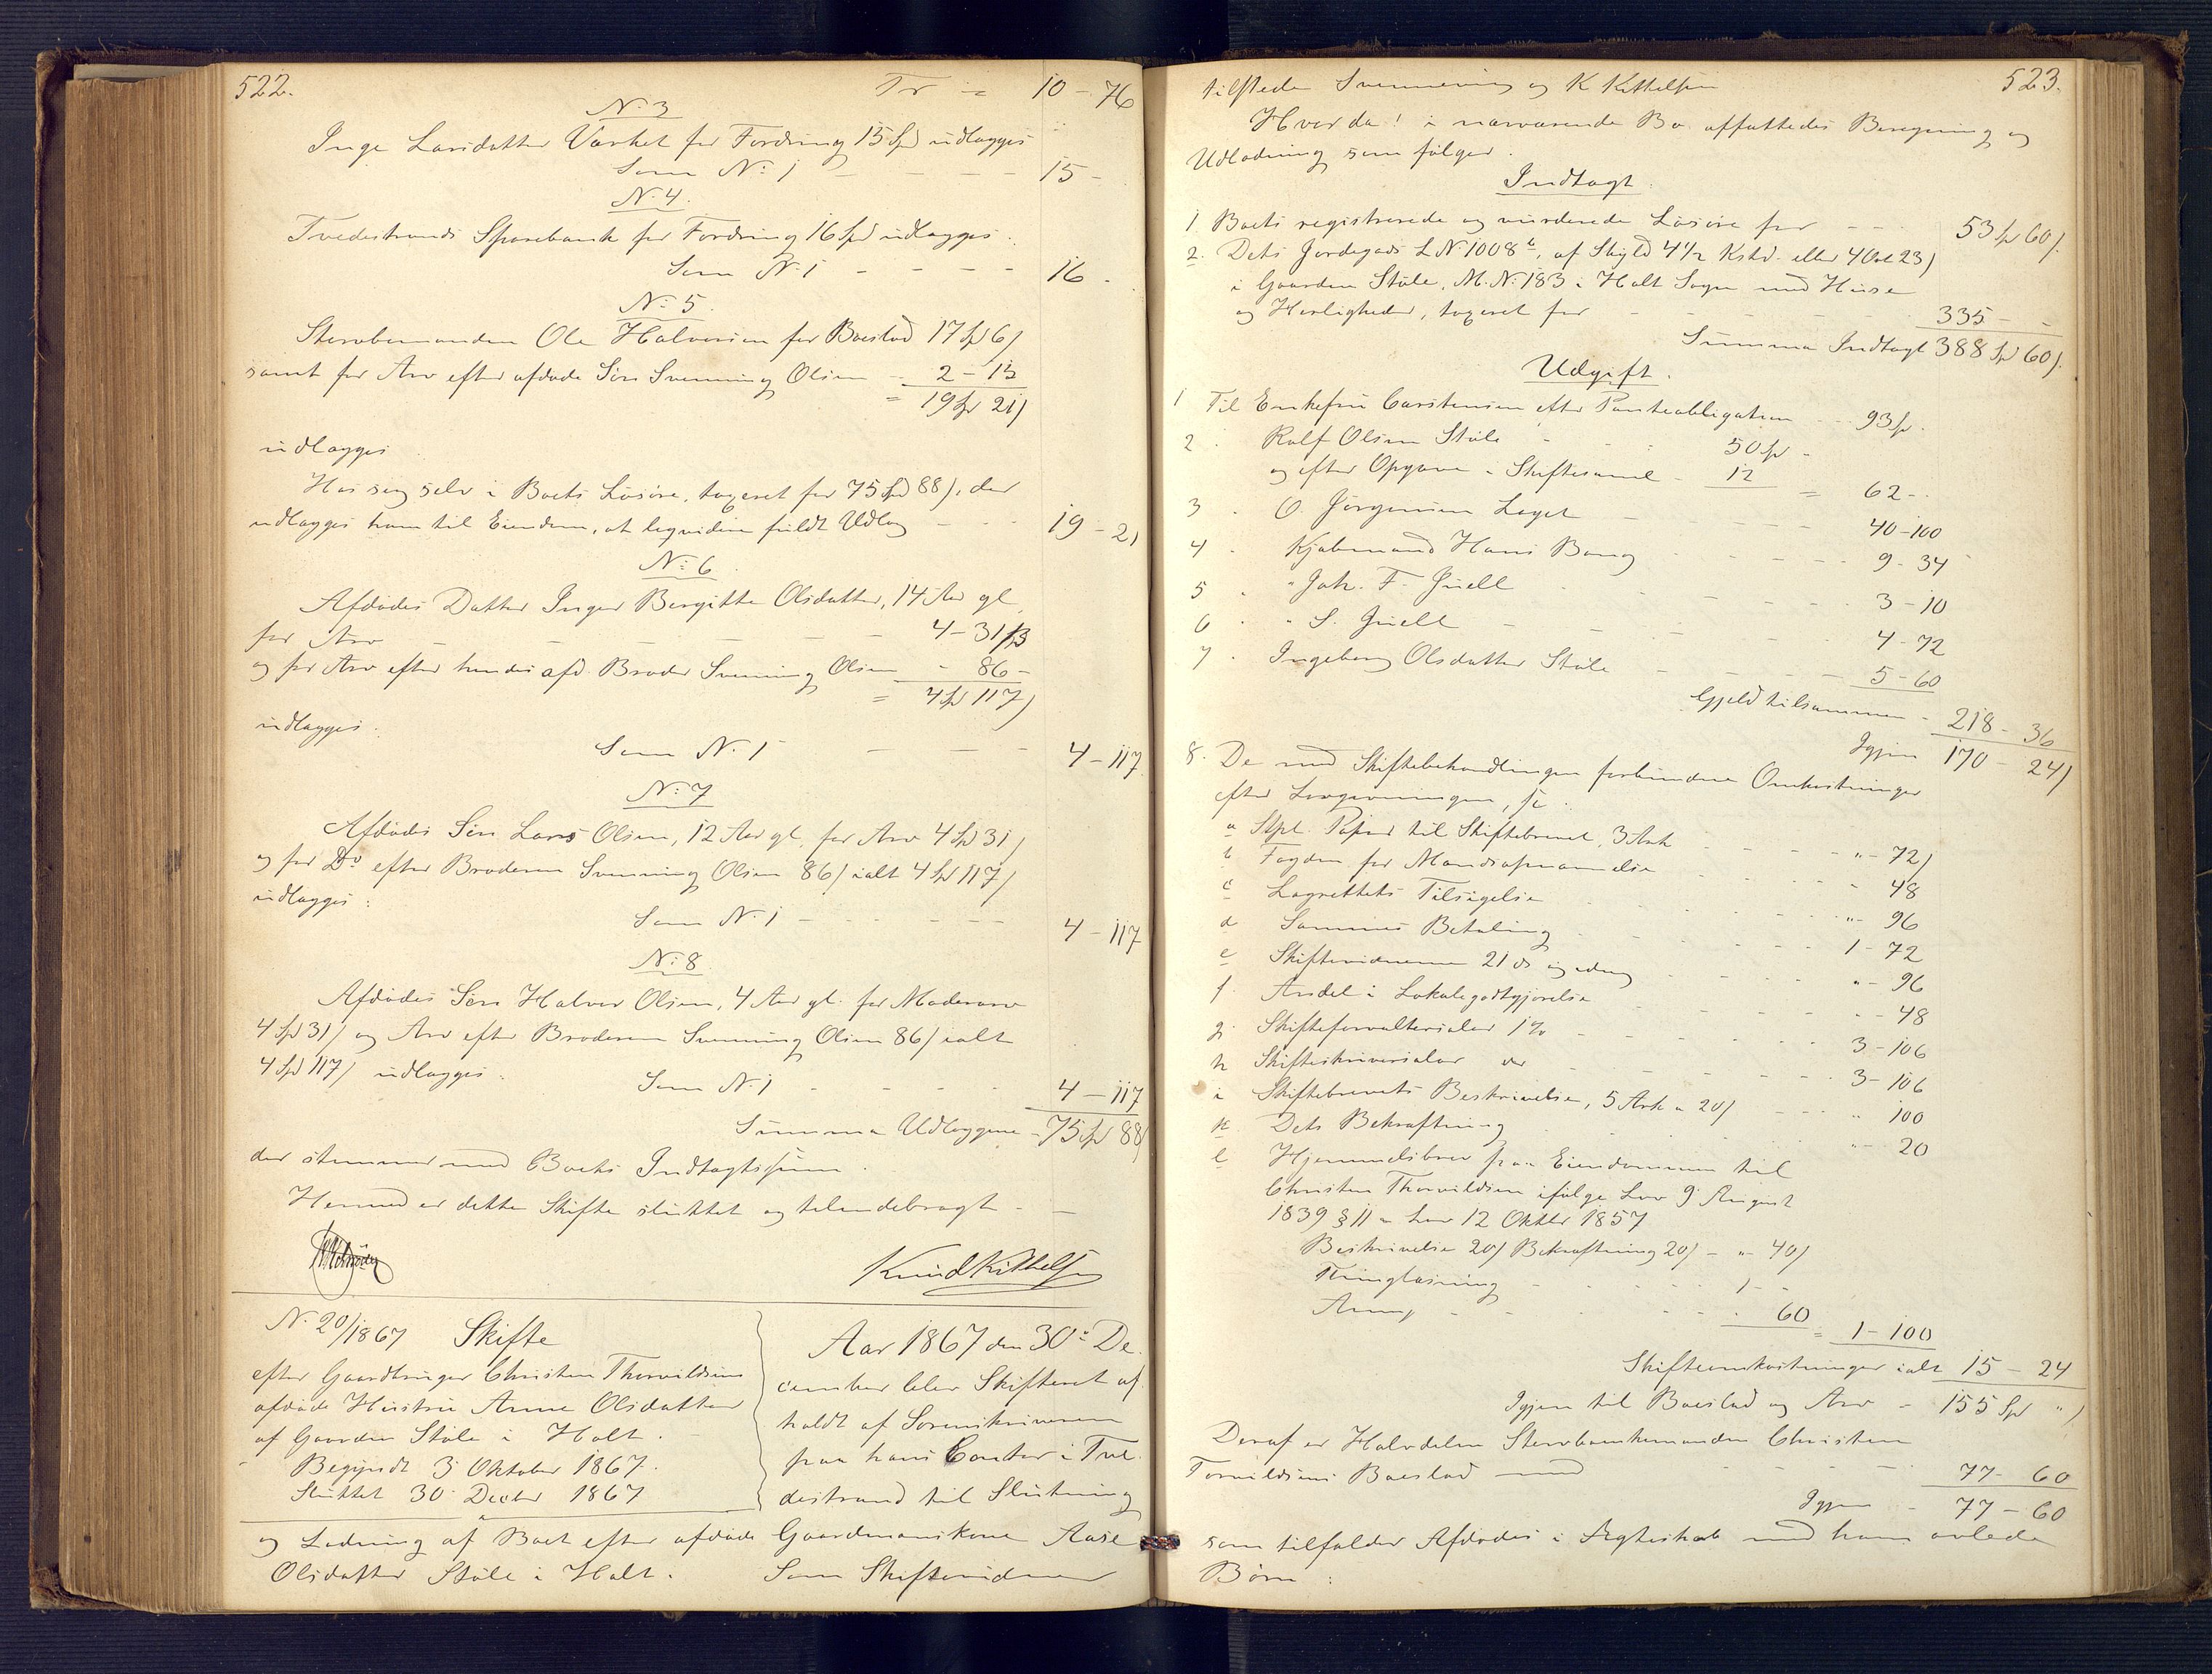 522.
Tr = 10 - 76
N. 3
Inge Larsdatter Værket for Fordring 15 Spd udlægges
Som N: 1 - - - - 15 -
N. 4.
Tvedestrands Sparebank for Fordring 16 Spd udlægges.
Som N. 1 - - - - 16 -
N: 5.
Stervbomanden Ole Halvorsen for Boeslod 17 Spd 6 ß
samt for Arv efter afdøde Søn Svenning Olsen - 2 - 15
= 19 Spd 21 ß
udlægges
Hos seg selv i Boets Løsøre, taxeret for 75 Spd 88 ß, der
udlægges ham til Eiendom, at liqvidere fuldt Udlæg - - - 19 - 21
N: 6.
Afdødes Datter Inger Bergitte Olsdatter, 14 Aar gl.
for Arv - - - - - 4 - 31 ß
og for Arv efter hendes afd. Broder Svenning Olsen - 86 -
= 4 Spd 117 ß
udlægges:
Som N. 1 - - - 4 - 117
N: 7
Afdødes Søn Lars Olsen, 12 Aar gl. for Arv 4 Spd 31 ß
og for Do efter Broderen Svenning Olsen 86 ß ialt 4 Spd 117 ß
udlægges:
Som N. 1 - - - - - 4 - 117
N: 8
Afdødes Søn Halvor Olsen, 4 Aar gl. for Moderarv
4 Spd 31 ß og Arv efter Broderen Svenning Olsen 86 ß ialt
4 Spd 117 ß udlægges:
Som N. 1 - - - - 4 - 117
Summa Udlæggene - 75 Spd 88 ß
der stemmer med Boets Indtægtssum.
Hermed er dette Skifte sluttet og tilendebragt. -
Knud Kittelsen
N. 20/1867 Skifte
efter Gaardbruger Christen Thorvildsens
afdøde Hustru Anne Olsdatter
af Gaarden Støle i Holt.
Begyndt 3 Oktober 1867.
Sluttet 30 Decbr 1867
Aar 1867 den 30te De-
cember blev Skifteret af-
holdt af Sorenskriveren
paa hans Contor i Tve-
destrand til Slutning
og Lodning af Boet efter afdøde Gaardmandskone Aase
Olsdatter Støle i Holt. Som Skiftevidner
523.
tilstede Svennevig og K Kittelsen
Hvorda! i nærværende Bo affattedes Beregning og
Udlodning som følger.
Indtægt.
1 Boets registrerede og vurderede Løsøre for - - - 53 Spd 60 ß
2. Dets Jordegods L N. 1008 b, af Skyld 4 1/2 Kskd. eller 4 Ort 23 ß
i Gaarden Støle, M. N. 183 i Holt Sogn med Huse
og Herligheder, taxeret for - - - - 335 - -
Summa Indtægt 388 Spd 60 ß
Udgift.
1 Til Enkefru Carstensen efter Panteobligation - - 93 Spd.
2 - Rolf Olsen Støle - - - 50 Spd -
og efter Opgave i Skiftesaml. - 12 = 62 -
3 - O. Jørgensen Laget - - - 40 - 100
4 - Kjøbmand Hans Bang - - - 9 - 34
5 - " Joh. F. Juell - - - - 3 - 10
6 - " S. Juell - - - - 4 - 72
7 - Ingeborg Olsdatter Støle - - - 5 - 60
Gjeld tilsammen - 218 - 36
Igjen 170 - 24 ß
8. De med Skiftebehandlingen forbundne Omkostninger
efter Lovgivningen, s:
a Stpl. Papir til Skiftebrevet, 3 Ark - - - " - 72 ß
b Fogden for Mandsopnævnelse - - - - 48
c Lagrettets Tilsigelse - - - - " - 96
d Sammes Betaling - - - - 1 - 72
e Skiftevidnerne - - - " - 96
f. Andel i Lokalegodtgjørelse - - - - 48
g. Skifteforvaltersalær 1 % - - - - 3 - 106
h Skifteskriversalær do - - - - 3 - 106
i Skiftebrevets Beskrivelse, 5 Ark a 20 ß - - - " 100
k Dets Bekræftning - - - - " - 20
l Hjemmelsbrev paa Eiendommen til
Christen Thorvildsen ifølge Lov 9 August
1839 § 11 a Lov 12 Oktbr 1857
Beskrivelse 20 ß Bekræftning 20 ß - " - 40 ß
Thinglæsning - - - - 1 - -
- - - - 60 = 1 - 100
Skifteomkostninger ialt 15 - 24
Igjen til Boeslod og Arv - 155 Spd " ß
Deraf er Halvdelen Stervboenkemanden Christen
Torvildsens Boeslod med - - - - 77 - 60
Igjen - 77 - 60
som tilfalder Afdødes i Ægteskab med ham avlede
Børn: